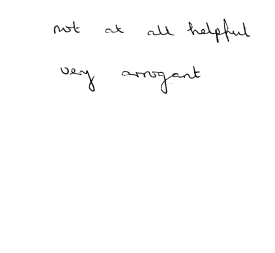 not at all helpful
very arrogant